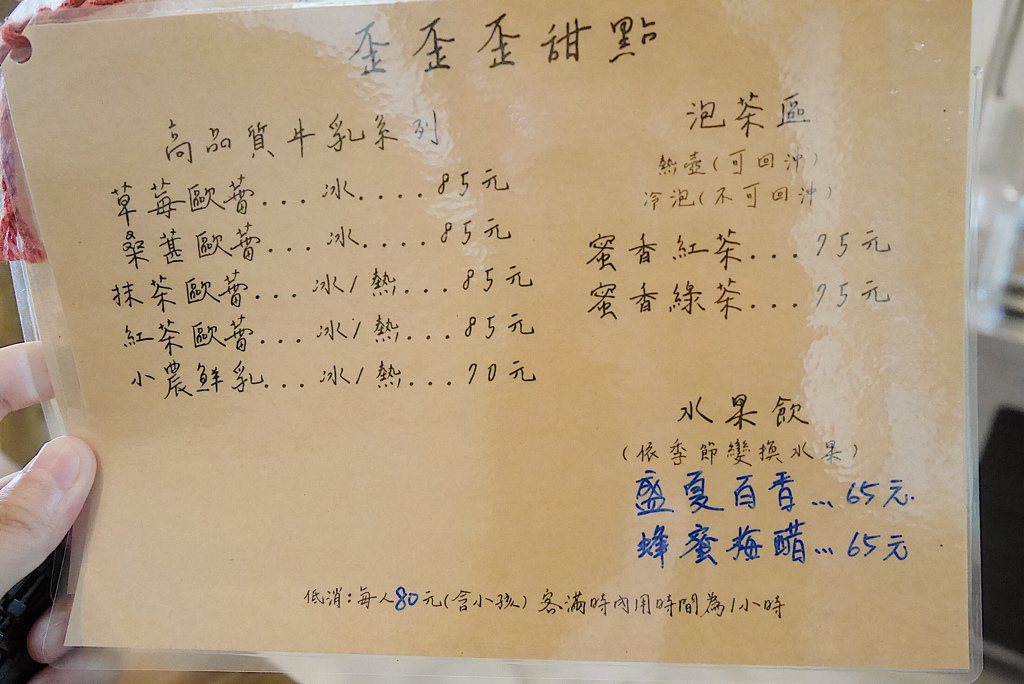 歪歪歪甜點
高品質牛乳系列
草莓歐蕾...冰....85元
桑葚歐蕾...冰....85元
抹茶歐蕾...冰/熱...85元
紅茶歐蕾...冰/熱...85元
小農鮮乳...冰/熱...70元
泡茶區
熱壺(可回沖)
冷泡(不可回沖)
蜜香紅茶...75元
蜜香綠茶...75元
水果飲
(依季節變換水果)
盛夏百香...65元
蜂蜜梅醋...65元
低消:每人80元(含小孩) 客滿時內用時間為1小時